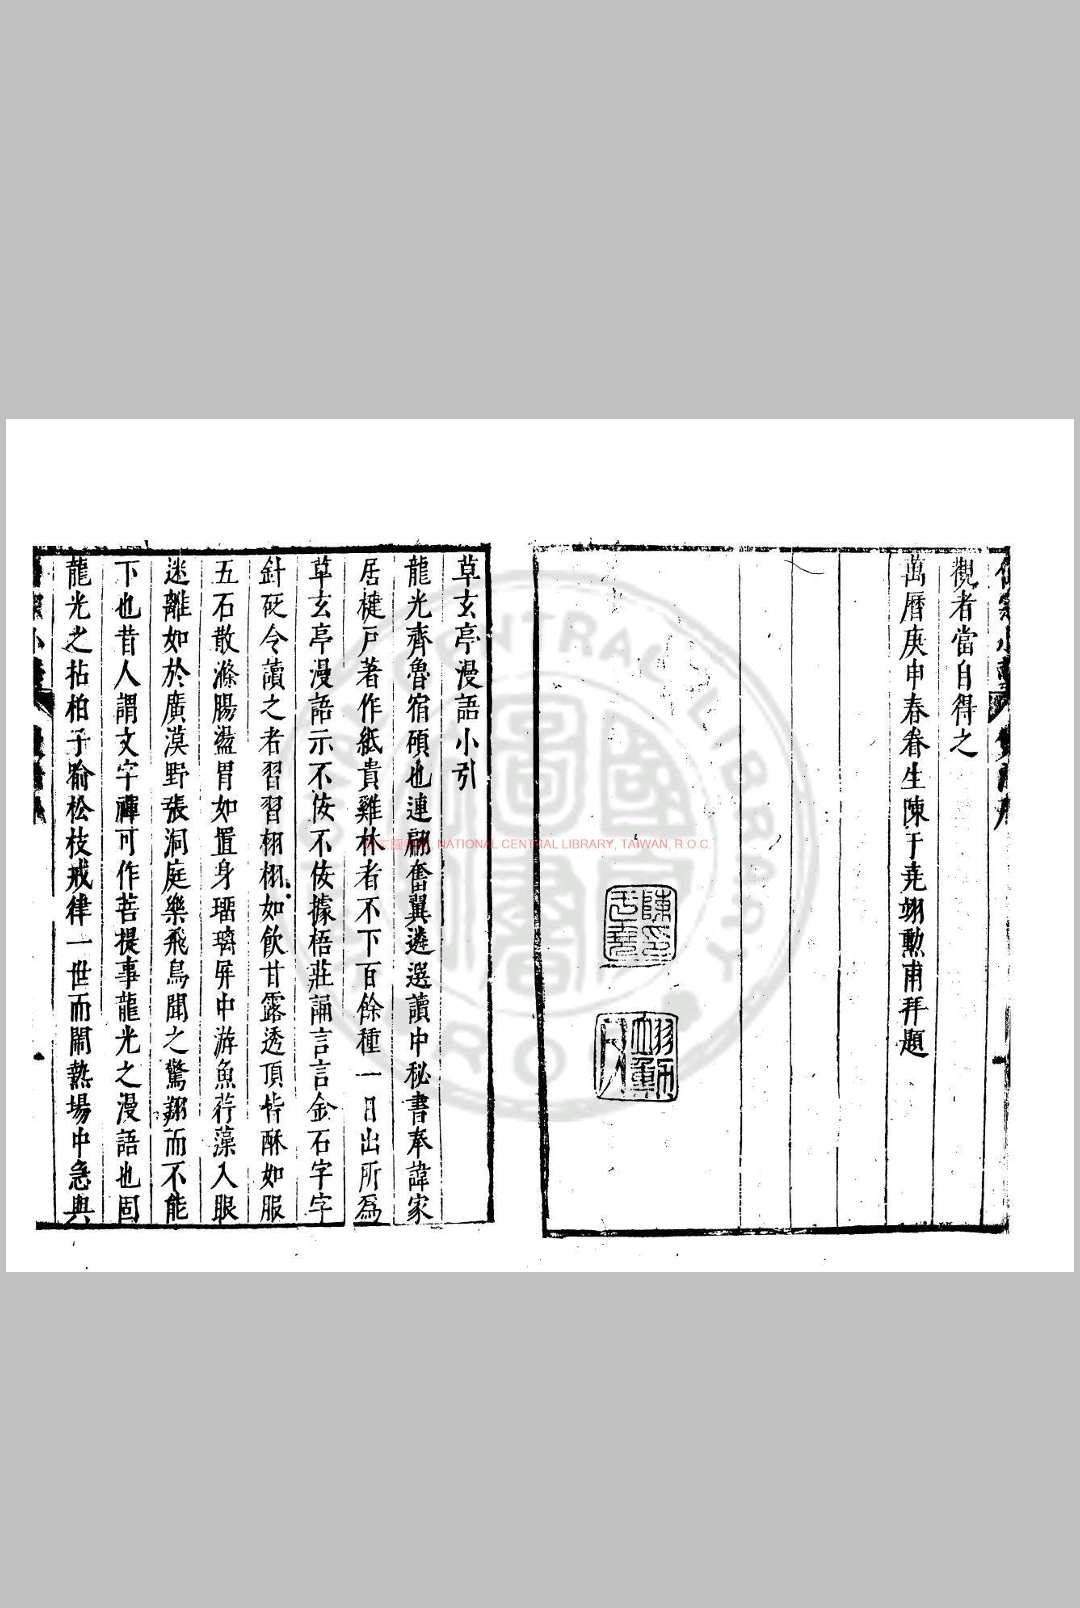 觀者當自得之
萬曆庚申春眷生陳于堯翊勲甫拜題
草玄亭漫語小引
龍光齊魯宿碩也連翩奮翼遴選讀中秘書奉諱家
居楗戸著作紙貴雞林者不下百餘種一日出所爲
草玄亭漫語示不佞不佞據梧莊誦言言金石字字
針砭令讀之者習習栩栩如飲甘露透頂皆酥如服
五石散滌腸盪胃如置身瑠璃屏中游魚荇藻入眼
迷離如於廣漠野張洞庭樂飛鳥聞之驚翔而不能
下也昔人謂文字禪可作菩提事龍光之漫語也固
龍光之拈柏子喻松枝戒律一世而鬧熱塲中急與
NATIONAL CENTRAL LIBRARY, TAIWAN, R.O.C